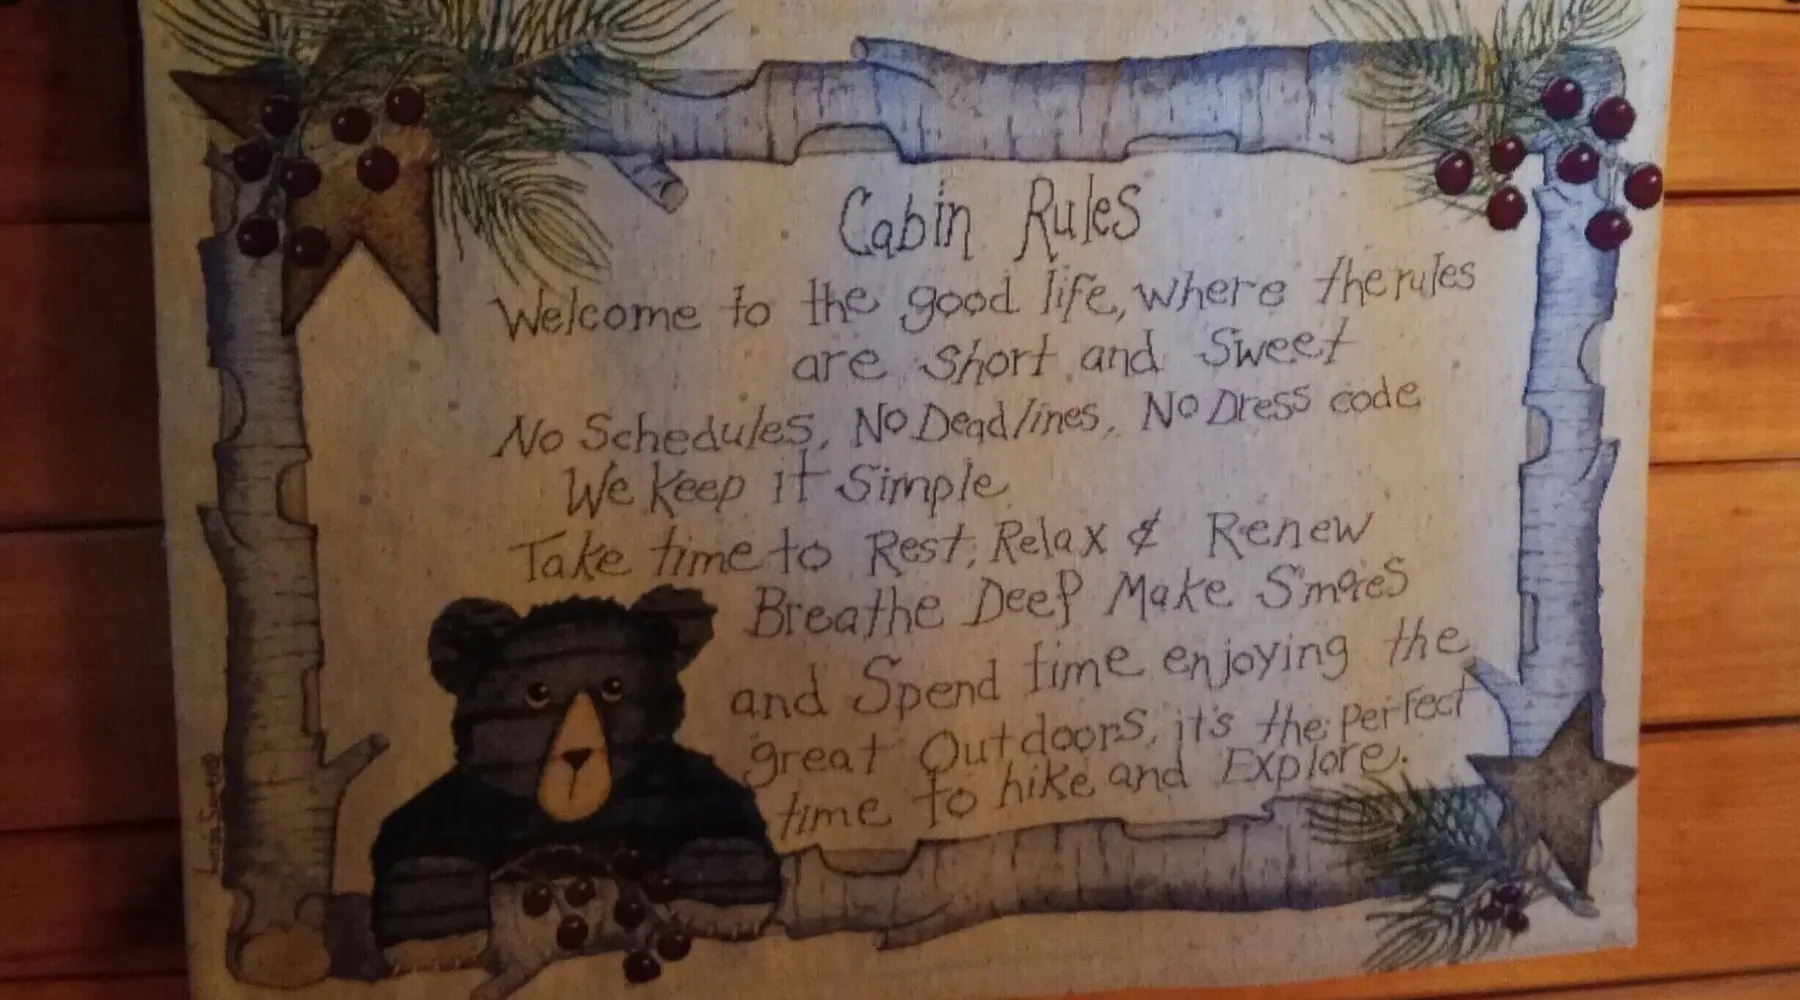 Cabin Rules
Welcome to the good life, where the rules
are short and Sweet
No Schedules, No Deadlines, No Dress code
We keep it Simple
Take time to Rest, Relax & Renew
Breathe Deep Make S'mores
and Spend time enjoying the
great Outdoors, it's the perfect
time to hike and Explore.